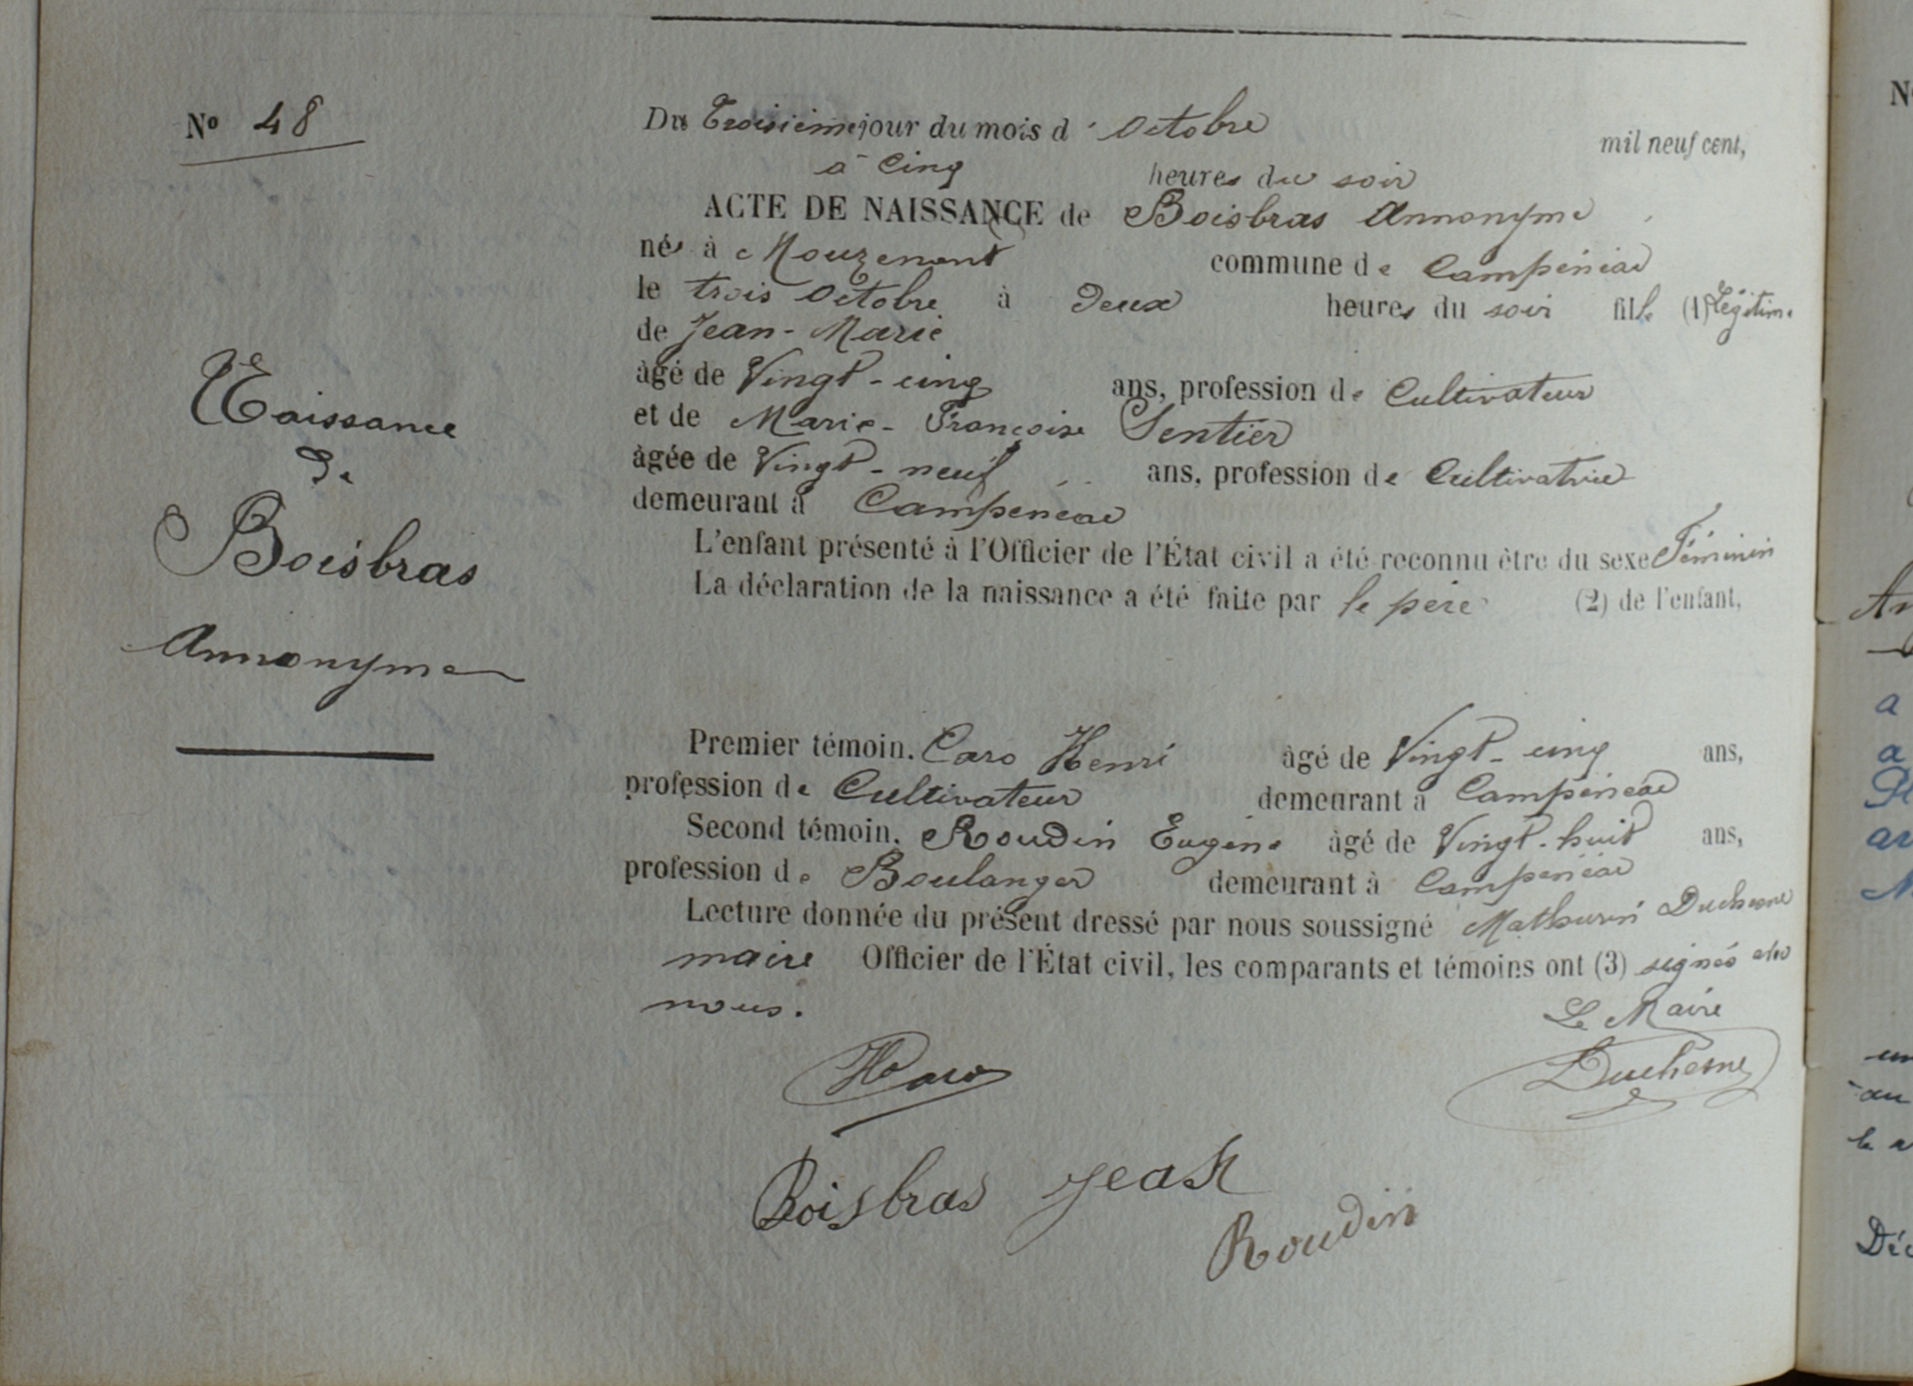 Nº 48
Du Troisième jour du mois d'Octobre mil neuf cent,
à Cinq heures du soir
ACTE DE NAISSANCE de Boisbras Annonyme
née à Mouzenant commune de Campénéac
le trois Octobre à Deux heures du soir fille (1) Légitime
de Jean-Marie
âgé de Vingt-cinq ans, profession de Cultivateur
et de Marie-Françoise Sentier
âgée de Vingt-neuf ans, profession de Cultivatrice
demeurant à Campeneac
L'enfant présenté à l'Officier de l'État civil a été reconnu être du sexe Féminin
La déclaration de la naissance a été faite par le père (2) de l'enfant,
Naissance
De
Boisbras
Annonyme
Premier témoin. Caro Henri âgé de Vingt-cinq ans,
profession de Cultivateur demeurant à Campénéac
Second témoin. Roudin Eugène âgé de Vingt-huit ans,
profession de Boulanger demeurant à Campénéac
Lecture donnée du présent dressé par nous soussigné Mathurin Duchesne
maire Officier de l'État civil, les comparants et témoins ont (3) signés avec
nous.
Le Maire
HCaro
Duchesne
Boisbras Jean
Roudin